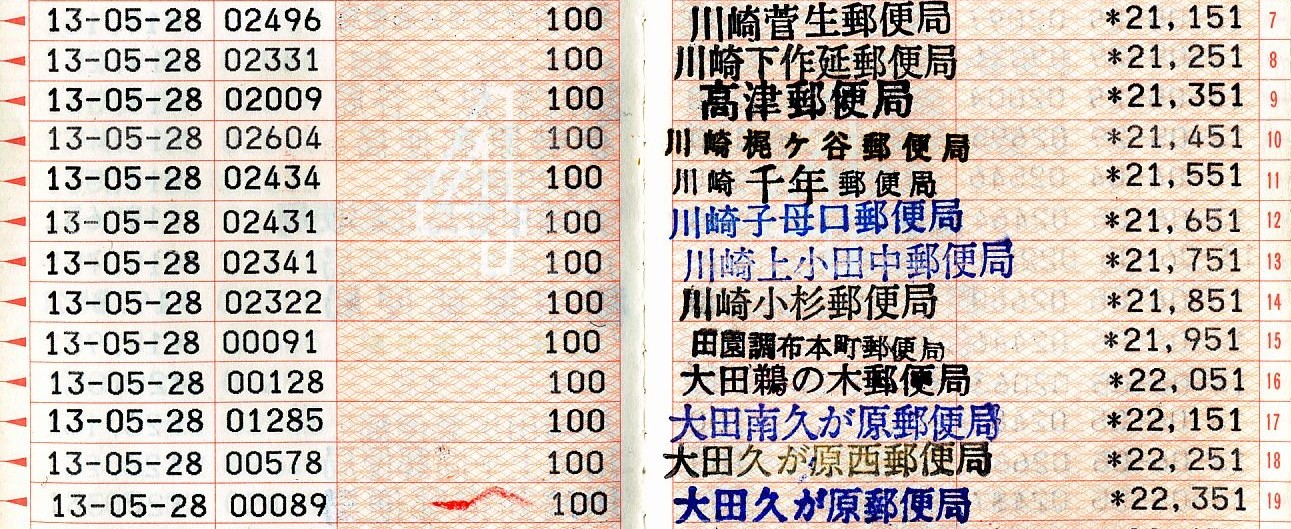 13-05-28 02496 100 川崎菅生郵便局 *21,151 7
13-05-28 02331 100 川崎下作延郵便局 *21,251 8
13-05-28 02009 100 高津郵便局 *21,351 9
13-05-28 02604 100 川崎梶ケ谷郵便局 *21,451 10
13-05-28 02434 100 川崎千年郵便局 *21,551 11
13-05-28 02431 100 川崎子母口郵便局 *21,651 12
13-05-28 02341 100 川崎上小田中郵便局 *21,751 13
13-05-28 02322 100 川崎小杉郵便局 *21,851 14
13-05-28 00091 100 田園調布本町郵便局 *21,951 15
13-05-28 00128 100 大田鵜の木郵便局 *22,051 16
13-05-28 01285 100 大田南久が原郵便局 *22,151 17
13-05-28 00578 100 大田久が原西郵便局 *22,251 18
13-05-28 00089 100 大田久が原郵便局 *22,351 19
4